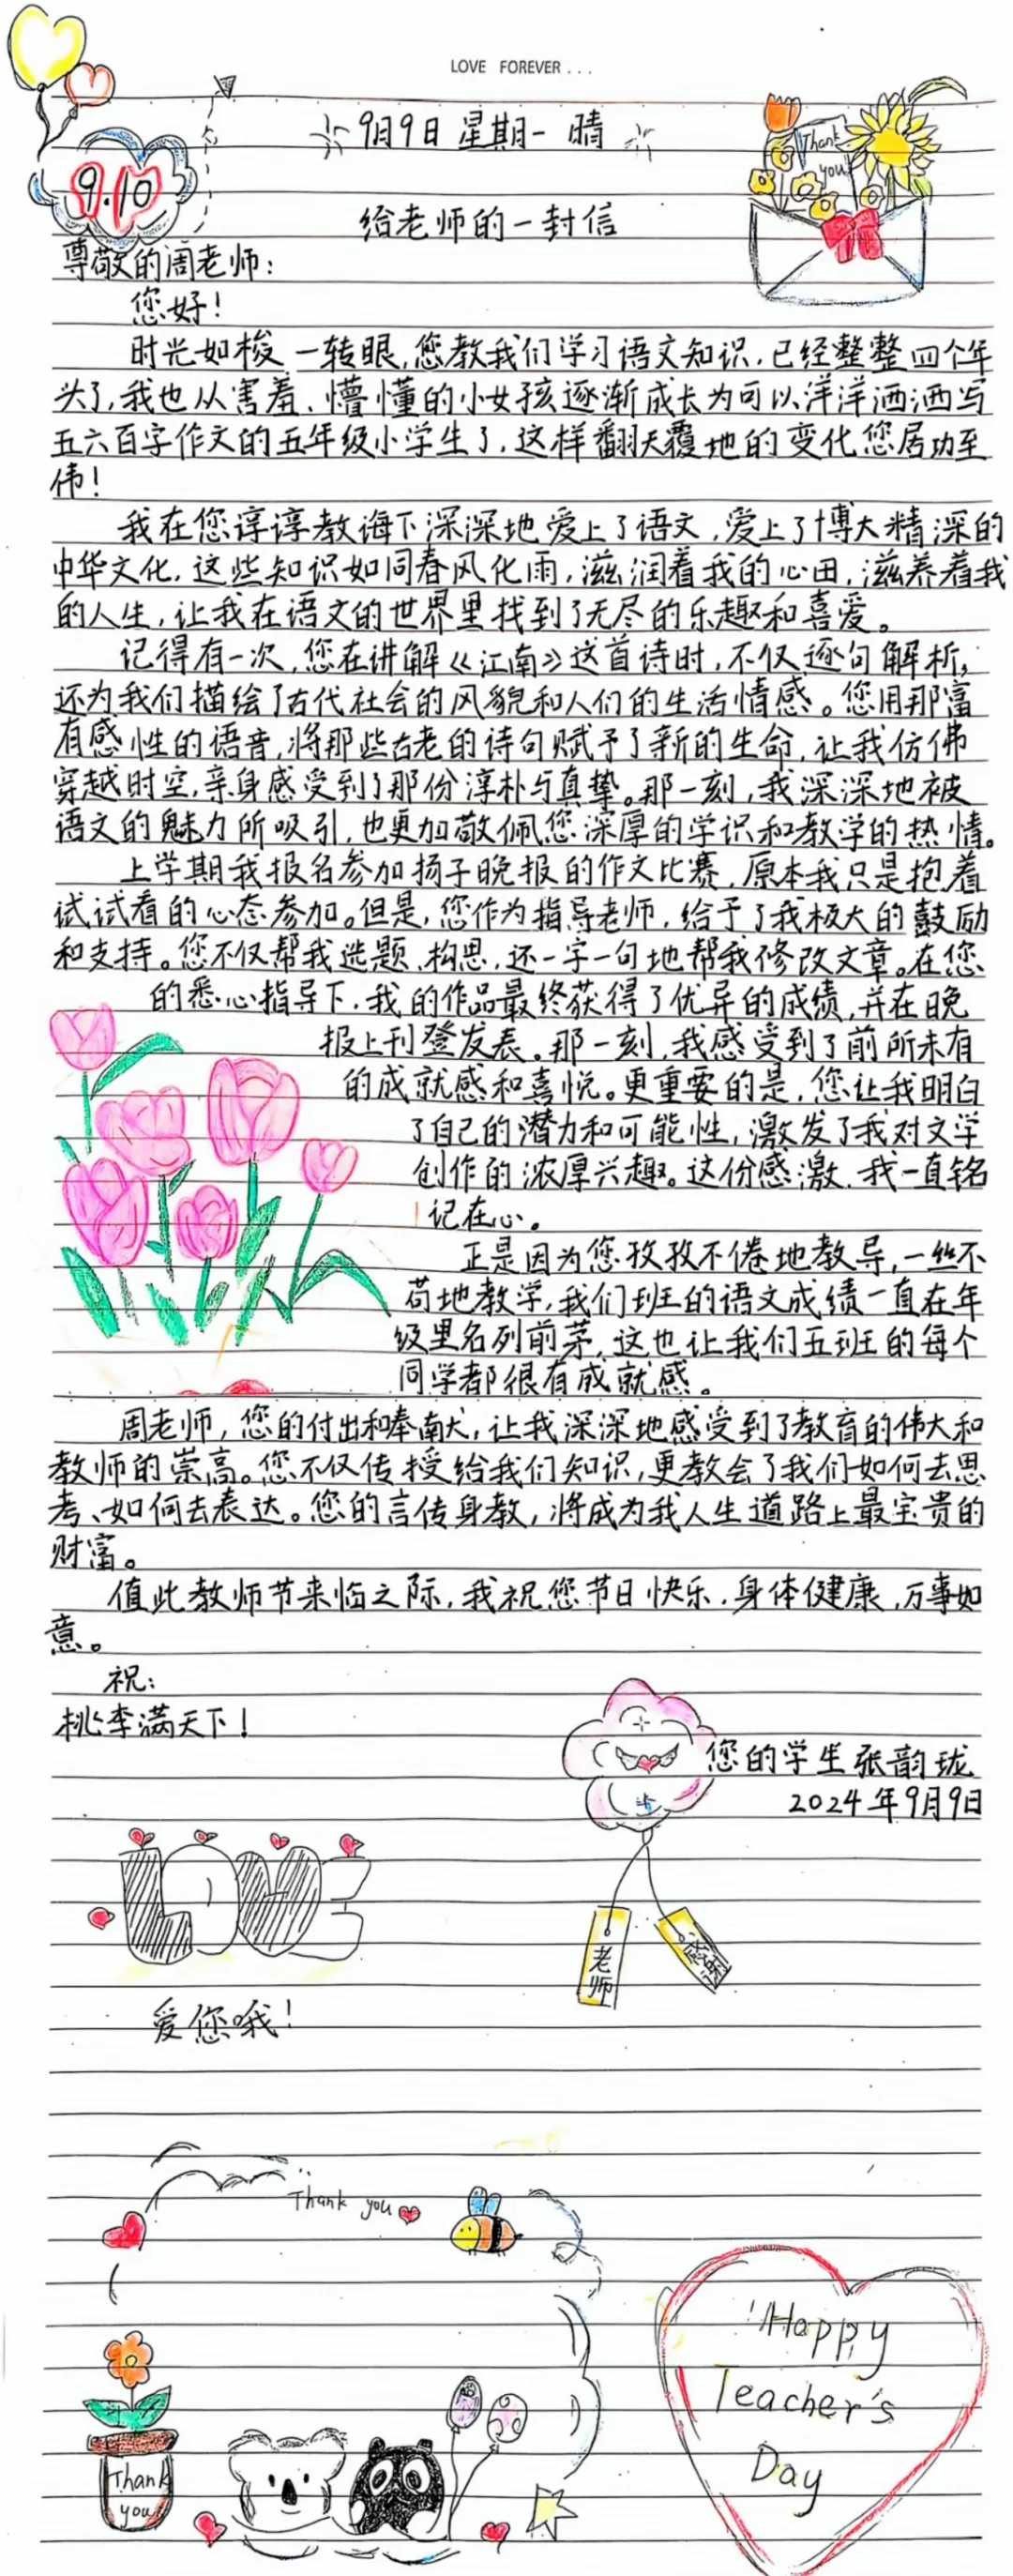 LOVE FOREVER...
9月9日 星期一 晴
9.10
Thank
you
给老师的一封信
尊敬的周老师:
您好!
时光如梭,一转眼,您教我们学习语文知识,已经整整四个年
头了,我也从害羞、懵懂的小女孩逐渐成长为可以洋洋洒洒写
五六百字作文的五年级小学生了,这样翻天覆地的变化您居功至
伟!
我在您谆谆教诲下深深地爱上了语文,爱上了博大精深的
中华文化,这些知识如同春风化雨,滋润着我的心田,滋养着我
的人生,让我在语文的世界里找到了无尽的乐趣和喜爱。
记得有一次,您在讲解《江南》这首诗时,不仅逐句解析,
还为我们描绘了古代社会的风貌和人们的生活情感。您用那富
有感性的语音,将那些古老的诗句赋予了新的生命,让我仿佛
穿越时空,亲身感受到了那份淳朴与真挚。那一刻,我深深地被
语文的魅力所吸引,也更加敬佩您深厚的学识和教学的热情。
上学期我报名参加扬子晚报的作文比赛,原本我只是抱着
试试看的心态参加。但是,您作为指导老师,给予了我极大的鼓励
和支持。您不仅帮我选题、构思,还一字一句地帮我修改文章。在您
的悉心指导下,我的作品最终获得了优异的成绩,并在晚
报上刊登发表。那一刻,我感受到了前所未有
的成就感和喜悦。更重要的是,您让我明白
了自己的潜力和可能性,激发了我对文学
创作的浓厚兴趣。这份感激,我一直铭
记在心。
正是因为您孜孜不倦地教导,一丝不
苟地教学,我们班的语文成绩一直在年
级里名列前茅,这也让我们五班的每个
同学都很有成就感。
周老师,您的付出和奉献,让我深深地感受到了教育的伟大和
教师的崇高。您不仅传授给我们知识,更教会了我们如何去思
考、如何去表达。您的言传身教,将成为我人生道路上最宝贵的
财富。
值此教师节来临之际,我祝您节日快乐,身体健康,万事如
意。
祝:
桃李满天下!
您的学生张韵珑
2024年9月9日
LOVE
老师
感谢
爱您哦!
Thank you
Happy
Teacher's
Day
Thank
you